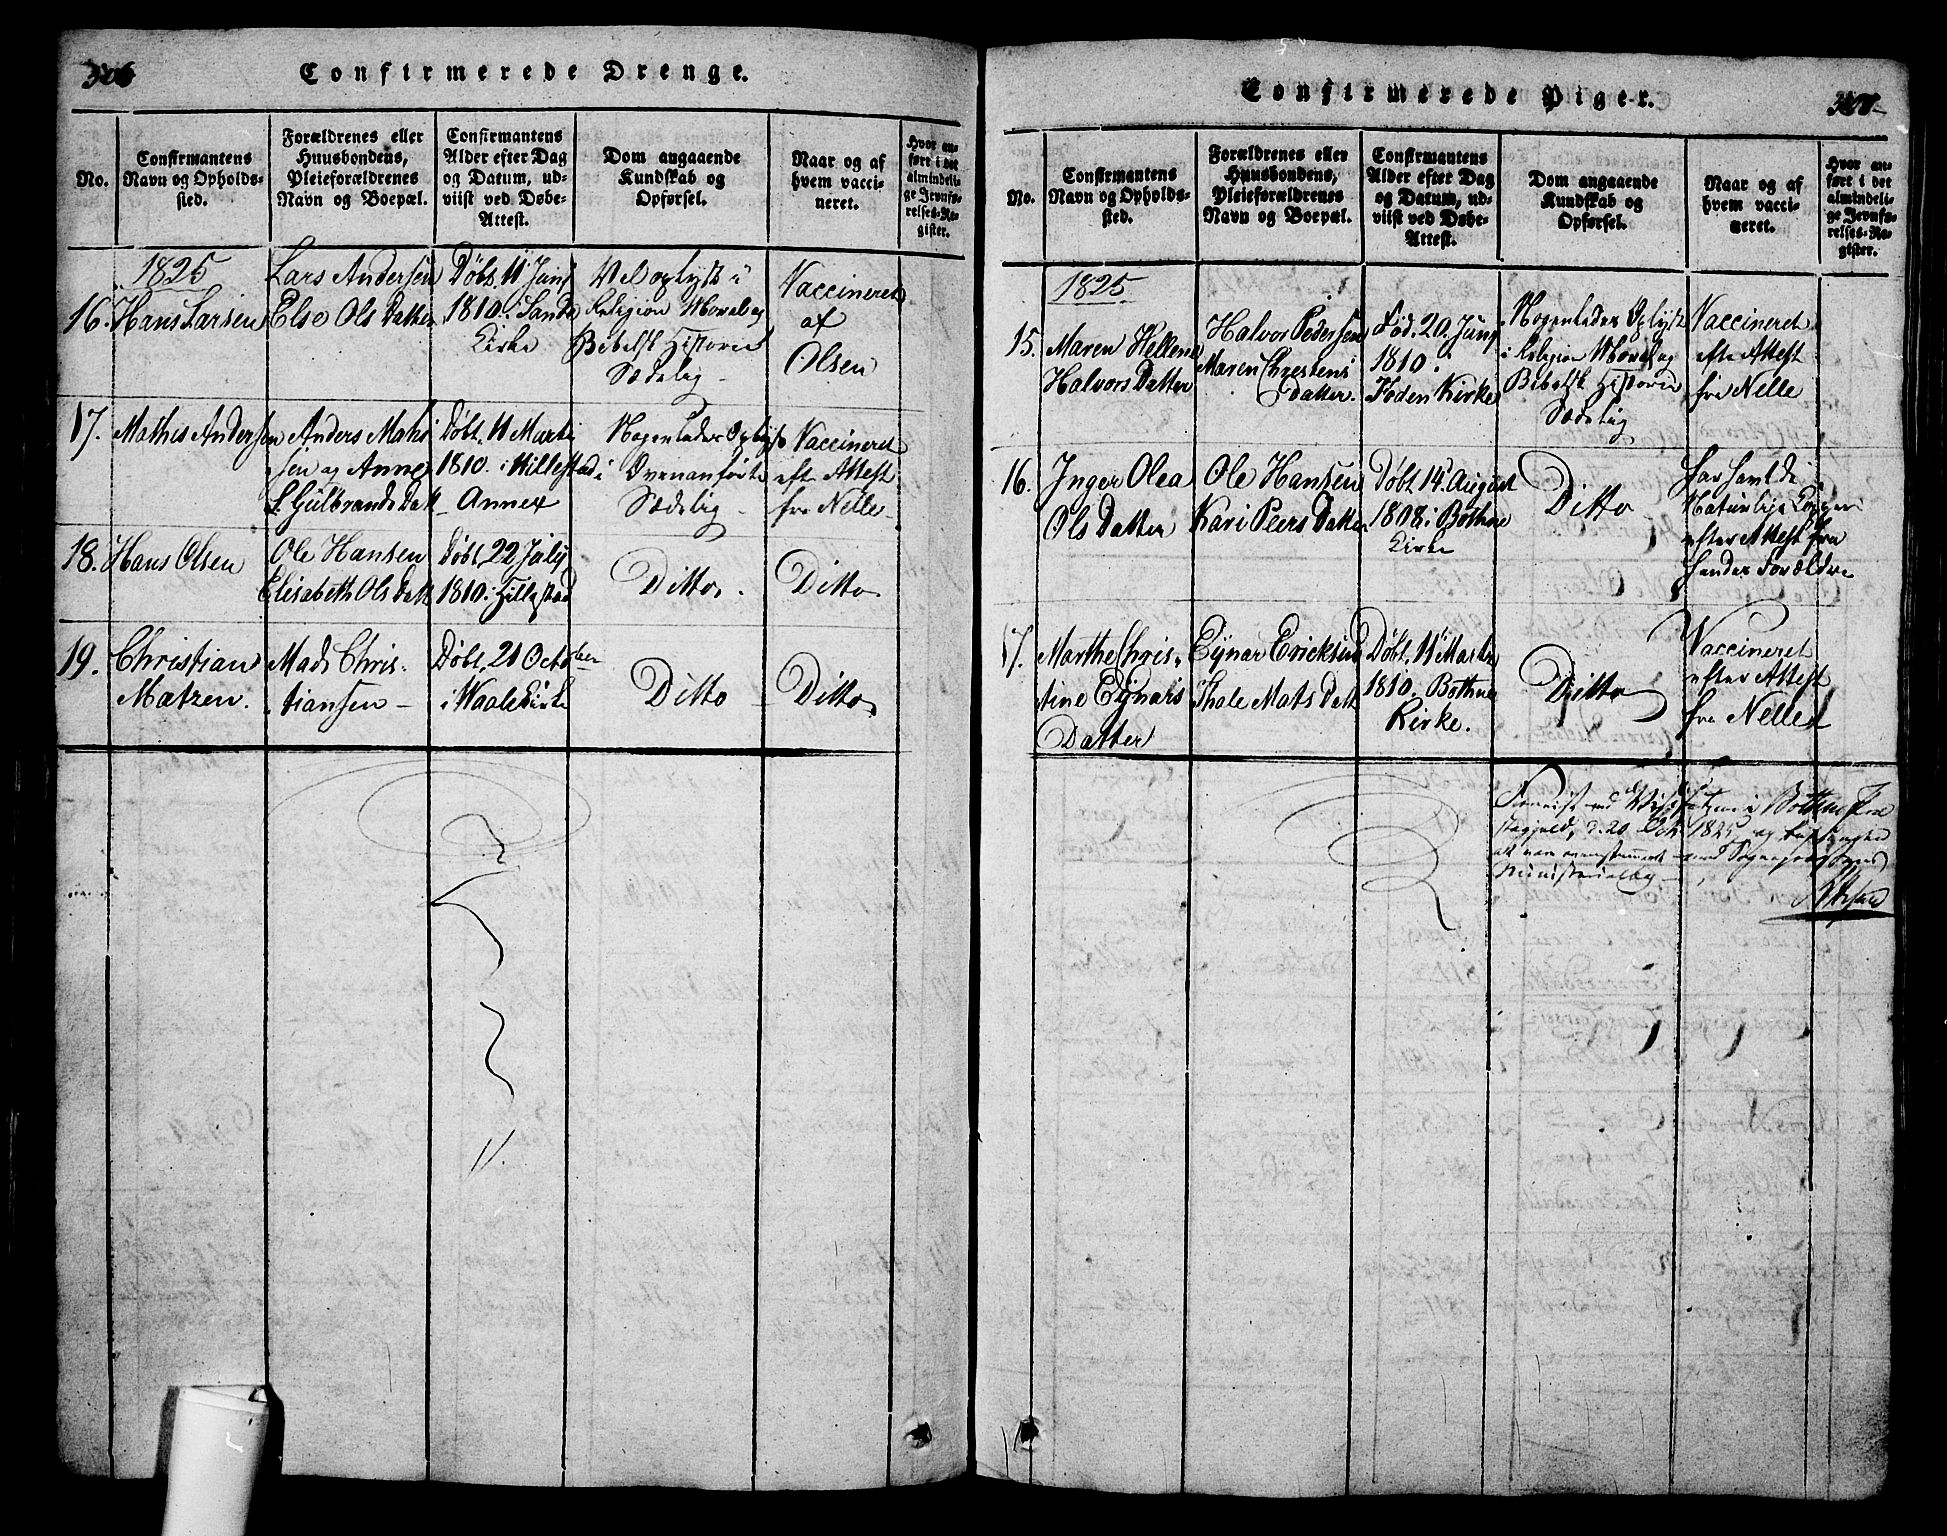 306
Confirmerede Drenge.
No.
Confirmantens
Navn og Opholds-
sted.
Forældrenes eller
Huusbondens,
Pleieforældrenes
Navn og Boepæl.
Confirmantens
Alder efter Dag
og Datum, ud-
viist ved Døbe-
Attest.
Dom angaaende
Kundskab og
Opførsel.
Naar og af
hvem vacci-
neret.
Hvor an-
ført i det
almindeli-
ge Jevnfø-
relses-Re-
gister.
1825
16. Hans Larsen
Lars Andersen
Else Ols Datter
Døbt 11 Janr
1810. i Sande
Kirke
Vel oplyst i
Religion Moral og
Bibelsk Historie
Sædelig
Vaccineret
af
Olsen
17. Mathis Andersen
Anders Mathi
sen og Anne
Gulbrands Datt
Døbt. 11 Marti
1810. i Hillestad
Annex
Nogenledes Oplyst
i Ovenanførte
Sædelig
Vaccineret
efter Attest
fra Nelle
18. Hans Olsen
Ole Hansen
Elisabeth Ols Datt
Døbt. 22 July
1810. i Hillestad
Ditto.
Ditto
19. Christian
Matzen.
Mads Chris-
tiansen
Døbt. 21 October
i Waale Kirke
Ditto
Ditto
Confirmerede Piger.
307
No.
Confirmantens
Navn og Opholds-
sted.
Forældrenes eller
Huusbondens,
Pleieforældrenes
Navn og Boepæl.
Confirmantens
Alder efter Dag
og Datum, ud-
viist ved Døbe-
Attest.
Dom angaaende
Kundskab og
Opførsel.
Naar og af
hvem vacci-
neret.
Hvor an-
ført i det
almindeli-
ge Jevnfø-
relses-Re-
gister.
1825
15. Maren Hellene
Halvors Datter
Halvor Pedersen
Maren Chrestens
Datter.
Fød. 20. Juny
1810.
Foden Kirke
Nogenledes Oplyst
i Religion Moral og
Bibelsk Historie
Sædelig
Vaccineret
efter Attest
fra Nelle
16. Inger Olea
Ols Datter
Ole Hansen
Kari Peers Datter
Døbt 14 August
1808 i Bothne
Kirke
Ditto
har havt de
Naturlige Kopper
efter Attest fra
hendes Forældre
17. Marthe Chris-
tine Eynars
Datter
Eynar Ericksen
Thale Mats Datt
Døbt. 11 Marti
1810. Bothne
Kirke.
Ditto
Vaccineret
efter Attest
fra Nelle
Foreviist ved Visitatzen i Bottne Præ
stegjeld, d. 20 Octr 1825 og
at være overeenstemmende med
Ministerialbog